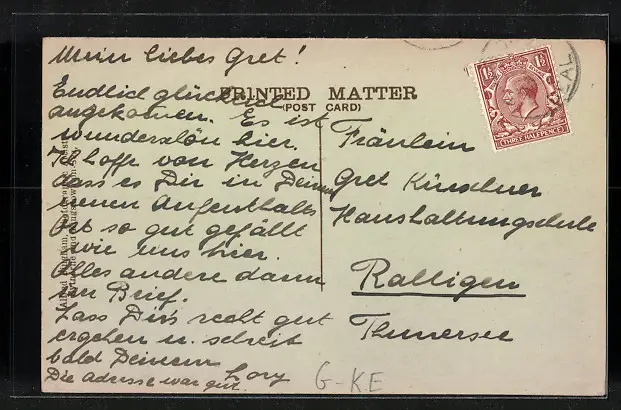 Mein liebes Gret!
Endlich glücklich
angekommen. Es ist
wunderschön hier.
Ich hoffe von Herzen
dass es Dir in Deinem
neuen Aufenthalts
Ort so gut gefällt
wie uns hier.
Alles andere dann
im Brief.
Lass Dir's recht gut
ergehen u. schreib
bald Deinem
Lory
Die Adresse war gut.
PRINTED MATTER
(POST CARD)
Fräulein
Gret
Haushaltungsschule
Ralligen
Thunersee
G-KE
1½ 1½
THREE HALFPENCE